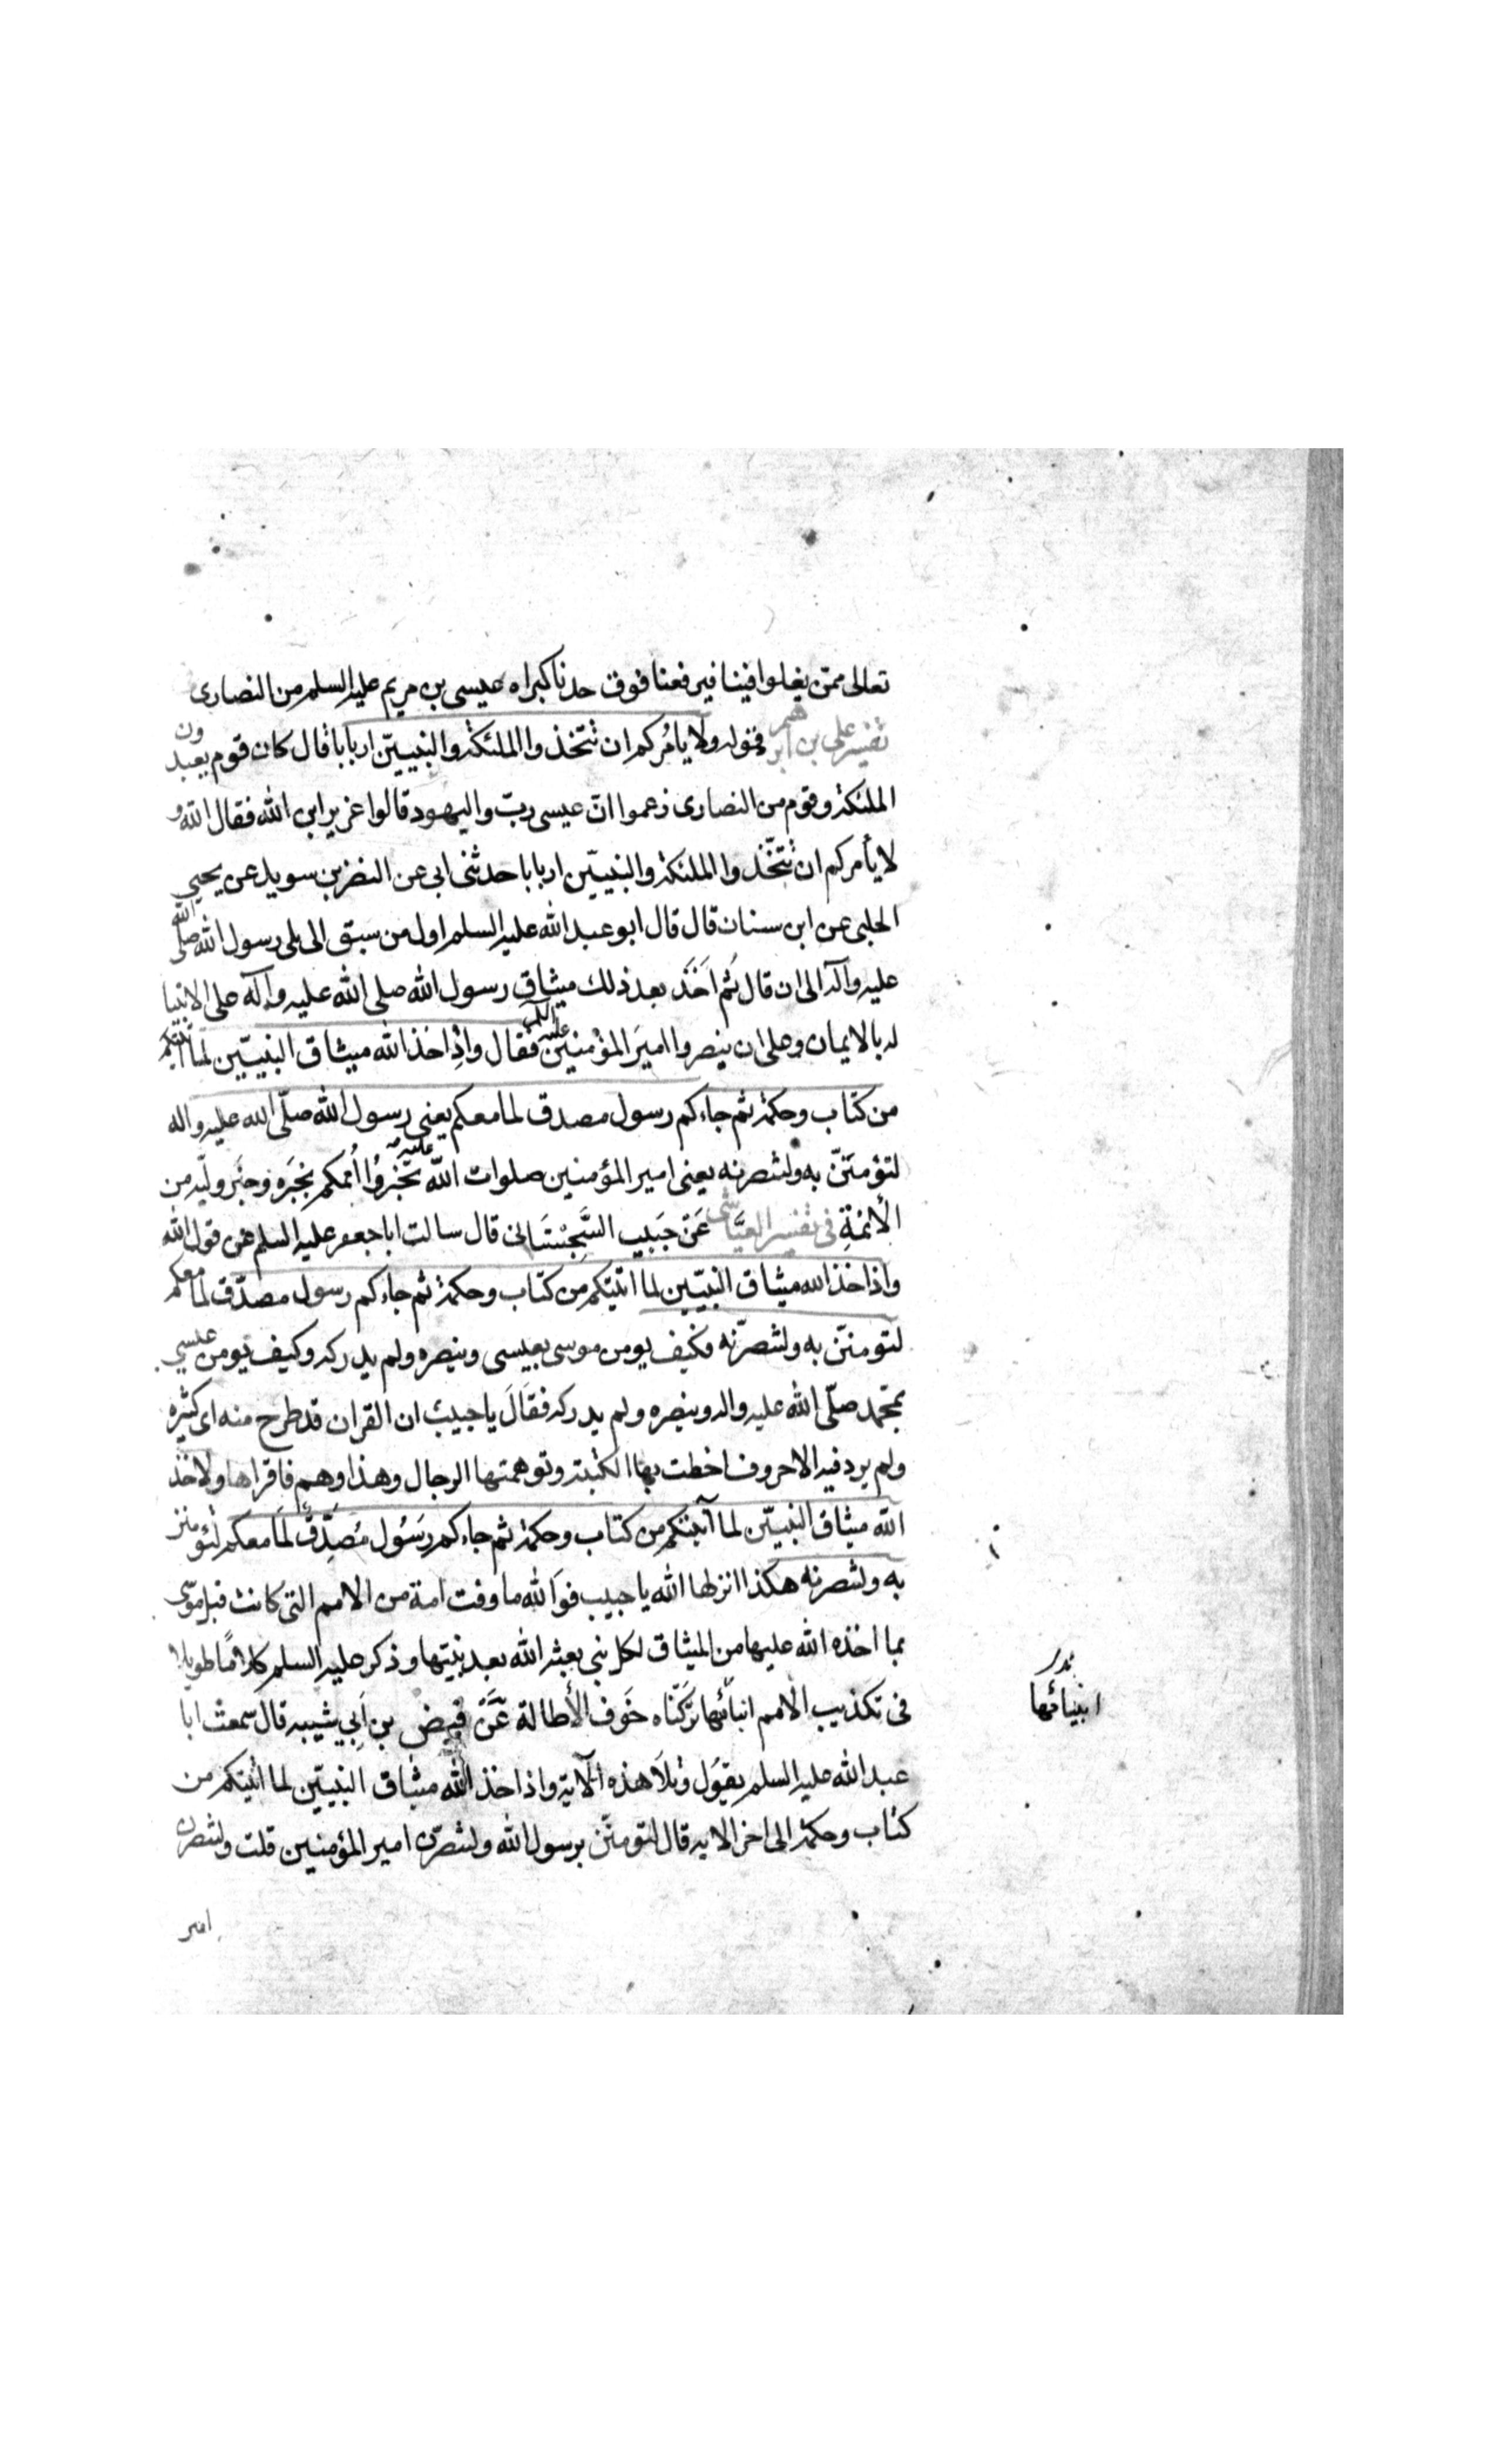 تعالى ممن يغلوا فينا فيرفعنا فوق حدنا كبراه عيسى بن مريم عليه السلم من النصارى
تفسير علي بن ابرهيم فى قوله ولا يامركم ان تتخذوا الملئكة والنبيين اربابا قال كان قوم يعبدون
الملئكة وقوم من النصارى زعموا انّ عيسى ربّ واليهود قالوا عزير ابن الله فقال الله
لا يأمركم ان تتّخذوا الملئكة والنبيّين اربابا حدثنى ابى عن النضر بن سويد عن يحيى
الحلبى عن ابن سنان قال قال ابو عبد الله عليه السلم اول من سبق الى بلى رسول الله صلى الله
عليه وآله الى ان قال ثم اَخَذَ بعد ذلك ميثاق رسول الله صلى الله عليه وآله على الانبيا
له بالايمان وعلى ان ينصروا اميرَ المؤمنين عليه السلم فقال واِذ اخذ الله ميثاق النبيّين لما آتيتكم
من كتاب وحكمة ثم جاءكم رسول مصدق لما معكم يعنى رسول الله صلّى الله عليه واله
لتؤمننّ به ولتنصرنه يعنى امير المؤمنين صلوات الله عليه تخبروُا اُممكم بخبَره وخبَر وليّه من
الأئمةِ فى تفسير العيَّاشى عَنْ حَبيب السَّجِسْتَانى قال سالت ابا جعفر عليه السلم عن قول الله
واذ اخذ الله ميثاق النبيّين لما اتيتكم من كتاب وحكمة ثم جاءكم رسول مصدّق لما معكم
لتومننّ به ولتنصرّنه فكيف يومن موسى بعيسى وينصره ولم يدركه وكيف يومن عيسى
بمحّمد صلّى الله عليه واله وينصره ولم يدركه فقَالَ يا حبيب ان القران قد طرح منه اى كثيره
ولم يزد فيه الا حروف اخطت بها الكتبته وتوهمتها الرجال وهذا وهم فاقراها ولاخذ
الله ميثاق النبيّين لما آتيتكم من كتاب وحكمة ثم جاءكم رسَوُل مُصَدِّقٌ لمَا معكم لتؤمنن
به ولتنصرنه هكذا انزلها الله يا حبيب فوَالله ما وفت امة من الامم التى كانت قبل موسى
بما اخذه الله عليها من الميثاق لكل نبى بعثه الله بعد نبيّها وذكر عليه السلم كلامًا طويلا
فى تكذيب الامم انبائها تركّناه خَوف الأطالة عَنَ فيض بن اَبِي شيبه قال سمعت ابا
انبيائها
عبد الله عليه السلم يقوَل وتلَا هذه الآية واذ اخذ الله ميثاق النبيّين لما اتيتكم من
كتاب وحكمة الى اخر الايه قال لتومننّ برسول الله ولتنصرّن امير المؤمنين قلت ولتنصرن
امير